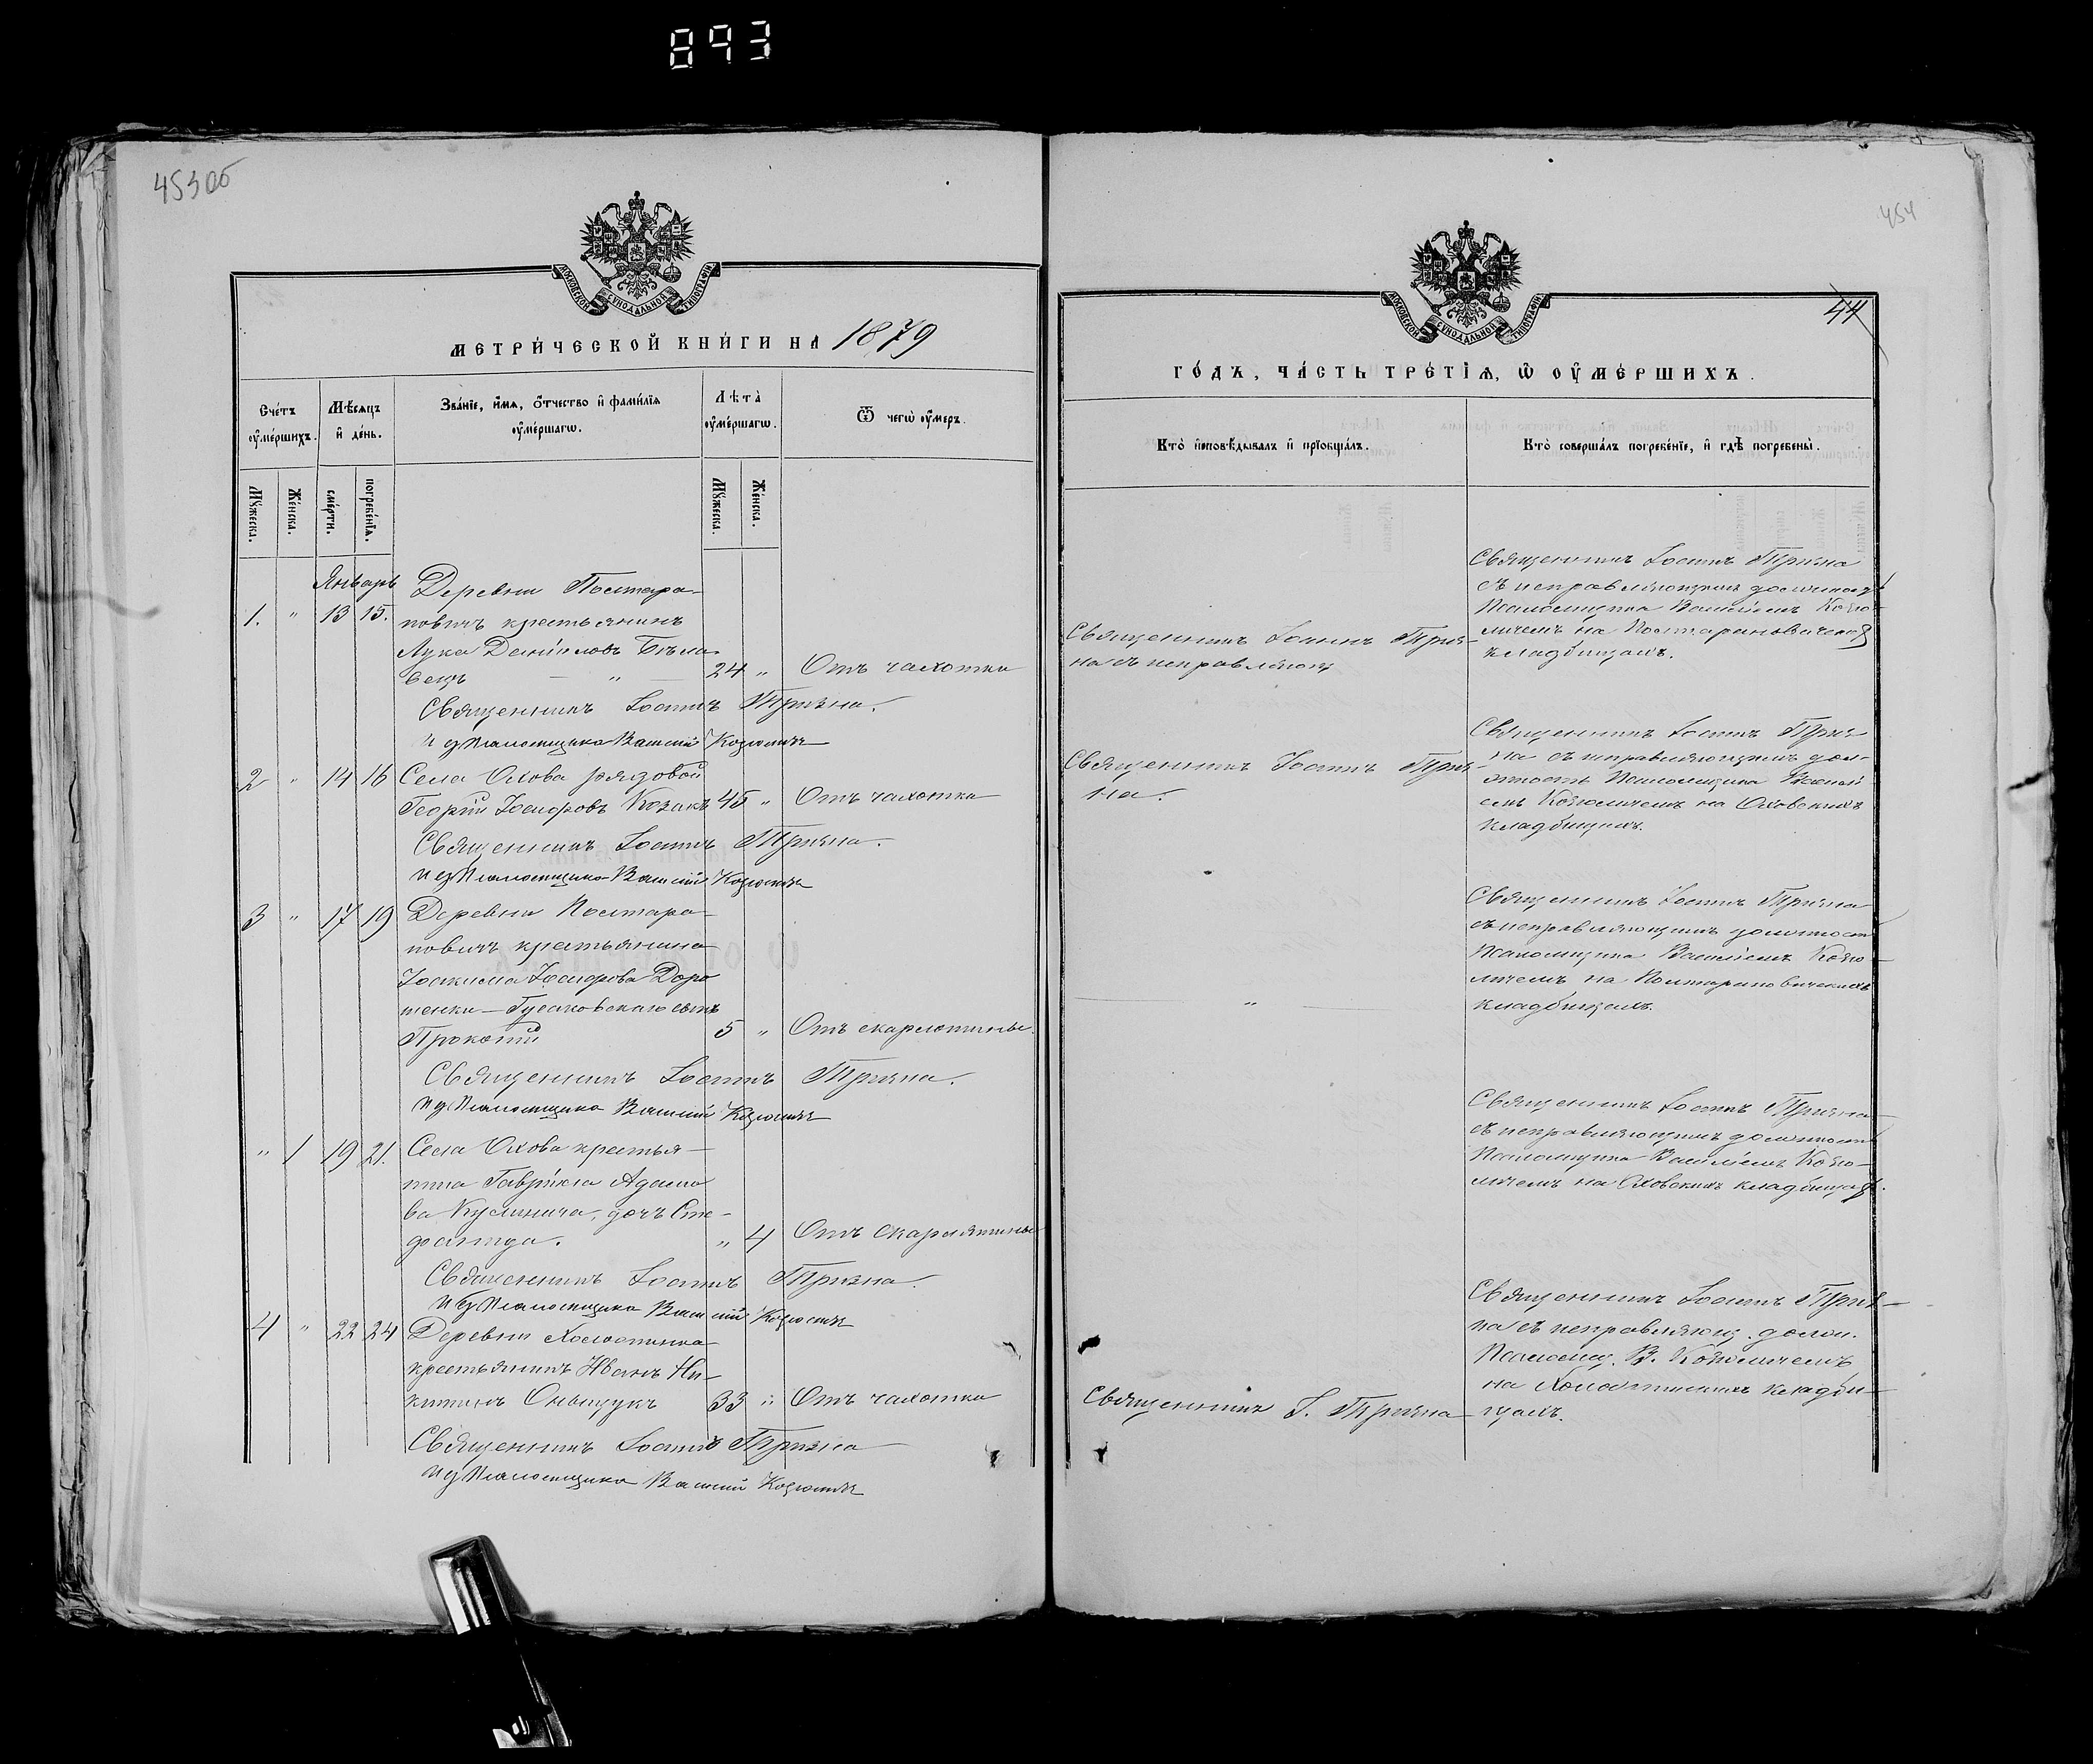 893
453об
МОСКОВСКОЙ СѴНОДАЛЬНОЙ ТИПОГРАФІИ
МЕТРИ́ЧЕСКОЙ КНИ́ГИ НА 1879
Сче́тъ ᲂу҆ме́ршихъ.
Мѣ́сяцъ и҆ де́нь.
Зва́нїе, и҆́мѧ, ѻ҆́тчество и҆ фами́лїѧ ᲂу҆ме́ршагѡ.
Лѣта̀ ᲂу҆ме́ршагѡ.
Ѿ чегѡ̀ ᲂу҆́меръ.
Мꙋ́жеска.
Же́нска.
сме́рти.
погребе́нїѧ.
Мꙋ́жеска
Же́нска.
Январь
1. " 13 15. Деревни Постара-
новичъ крестьянинъ
Лука Даніиловъ Бѣла-
вецъ — " — 24 " Отъ чахотки
Священникъ Іоаннъ Тризна.
И д Псаломщика Василій Козюличъ
2 " 14 16 Села Охова рядовой
Георгій Іосифовъ Козакъ 45 " Отъ чахотки
Священникъ Іоаннъ Тризна.
И д Псаломщика Василій Козюличъ
3 " 17 19 Деревни Постара-
новичъ крестьянина
Іоакима Іосифова Доро
шенки-Гусаковскаго сынъ
Прокопій 5 " Отъ скарлотины.
Священникъ Іоаннъ Тризна.
И д Псаломщика Василій Козюличъ
" 1 19 21. Села Охова крестья-
нина Гавріила Адамо
ва Кулинича, дочь Сте-
фанида. " 4 Отъ скарлятины
Священникъ Іоаннъ Тризна.
И д Псаломщика Василій Козюличъ
4 " 22 24 Деревни Холостинка
крестьянинъ Иванъ Ни-
китинъ Онощукъ 33 " Отъ чахотки
Священникъ Іоаннъ Тризна
И д Псаломщика Василій Козюличъ
454
44
МОСКОВСКОЙ СѴНОДАЛЬНОЙ ТИПОГРАФІИ
ГО́ДЪ, ЧА́СТЬ ТРЕ́ТІѦ, Ѡ҆ ОУ҆МЕ́РШИХЪ.
Кто̀ и҆сповѣ́дывалъ и҆ прїѡбща́лъ.
Кто̀ соверша́лъ погребе́нїе, и҆ гдѣ̀ погребены̀.
Священникъ Іоаннъ Триз-
на съ исправляющ
Священникъ Іоаннъ Тризна
съ исправляющимъ должность
Псаломщика Василіемъ Козю-
личемъ на Постарановичскихъ
кладбищахъ.
Священникъ Іоаннъ Триз-
на.
Священникъ Іоаннъ Триз-
на съ исправляющимъ дол-
жность Псаломщика Василі-
емъ Козюличемъ на Оховскихъ
кладбищахъ.
— " —
Священникъ Іоаннъ Тризна
съ исправляющимъ должность
Псаломщика Василіемъ Козю-
личемъ на Постарановичскихъ
кладбищахъ.
Священникъ Іоаннъ Тризна
съ исправляющимъ должность
Псаломщика Василіемъ Козю-
личемъ на Оховскихъ кладбищахъ.
Священникъ І. Тризна
Священникъ Іоаннъ Триз-
на съ исправляющ. долж.
Псаломщ. В. Козюличемъ
на Холостинскихъ кладби-
щахъ.